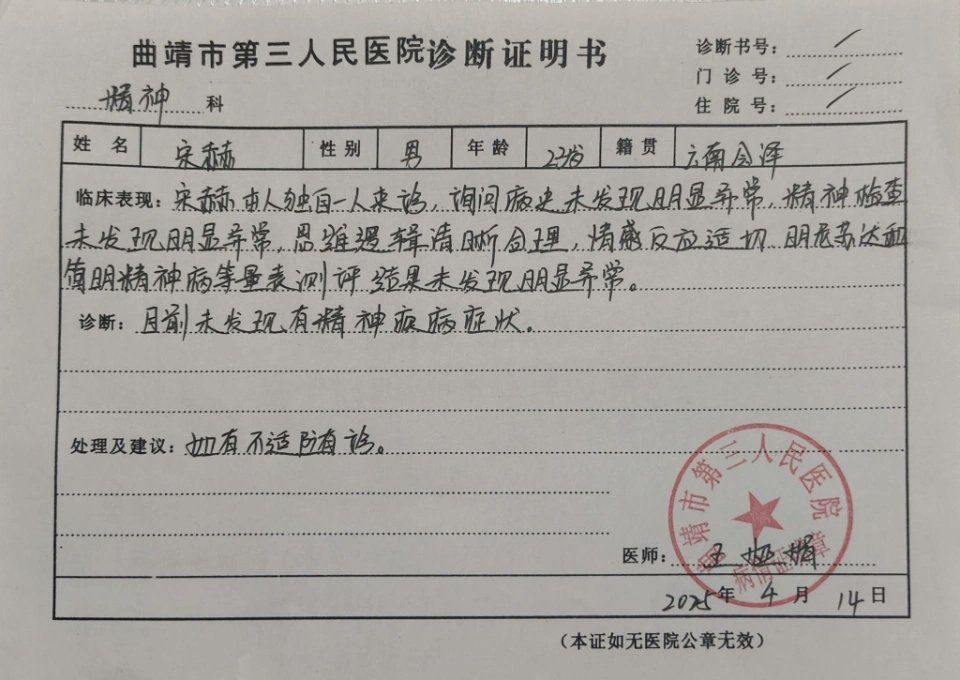 曲靖市第三人民医院诊断证明书
诊断书号: /
门诊号: /
住院号: /
精神 科
姓名 宋赫 性别 男 年龄 23岁 籍贯 云南会泽
临床表现: 宋赫本人独自一人来诊，询问病史未发现明显异常，精神检查
未发现明显异常，思维逻辑清晰合理，情感反应适切，明尼苏达和
简明精神病等量表测评结果未发现明显异常。
诊断: 目前未发现有精神疾病症状.
处理及建议: 如有不适随诊。
曲靖市第三人民医院
病情证明章
医师: 王娅娟
2025年 4月 14日
(本证如无医院公章无效)